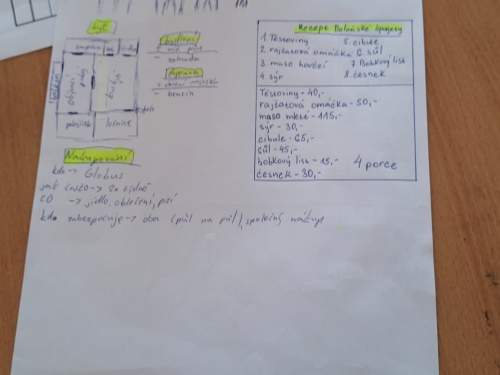 byt
koupelna
wc
balkón
obývací
ložnice
zahrada
benzín
Nakupování
kde -> Globus
jak často -> 2x týdně
co -> jídlo, oblečení, pití
kdo zabezpečuje -> oba (půl na půl), společný nákup
Recept Boloňské špagety
1 Těstoviny 5. cibule
2. rajčatová omáčka 6. sůl
3. maso hovězí 7. Bobkový list
4 sýr 8. česnek
Těstoviny - 40,-
rajčatová omáčka - 50,-
maso mleté - 115,-
sýr - 30,-
cibule - 65,-
sůl - 45,-
bobkový list - 15,-
česnek - 30,-
4 porce